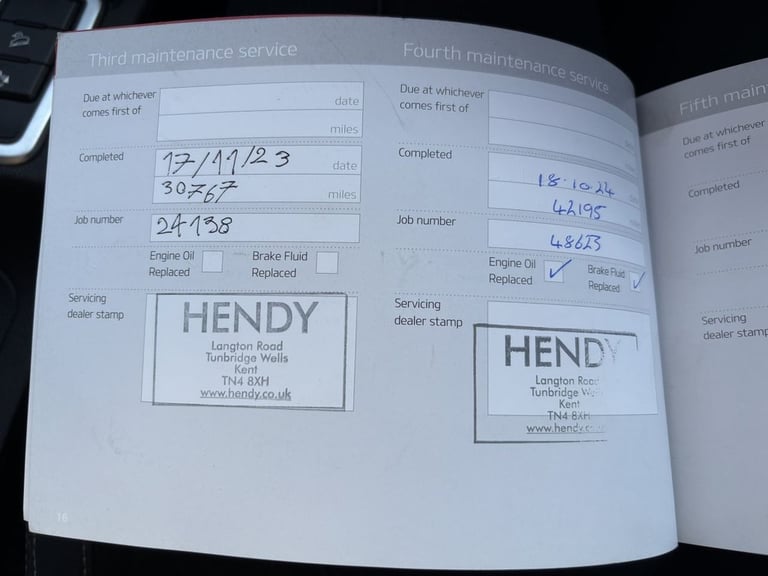 Third maintenance service
Due at whichever
comes first of
date
miles
Completed
17/11/23 date
30767 miles
Job number
24138
Engine Oil
Replaced
Brake Fluid
Replaced
Servicing
dealer stamp
HENDY
Langton Road
Tunbridge Wells
Kent
TN4 8XH
www.hendy.co.uk
16
Fourth maintenance service
Due at whichever
comes first of
Completed
18.10.24
42195
Job number
Engine Oil
Replaced
✓
Brake Fluid
Replaced
✓
Servicing
dealer stamp
HENDY
Langton Roa
Tunbridge We
Kent
TN4 8XH
www.hendy.c
Fifth main
Due at whichever
comes first of
Completed
Job number
Servicing
dealer stamp